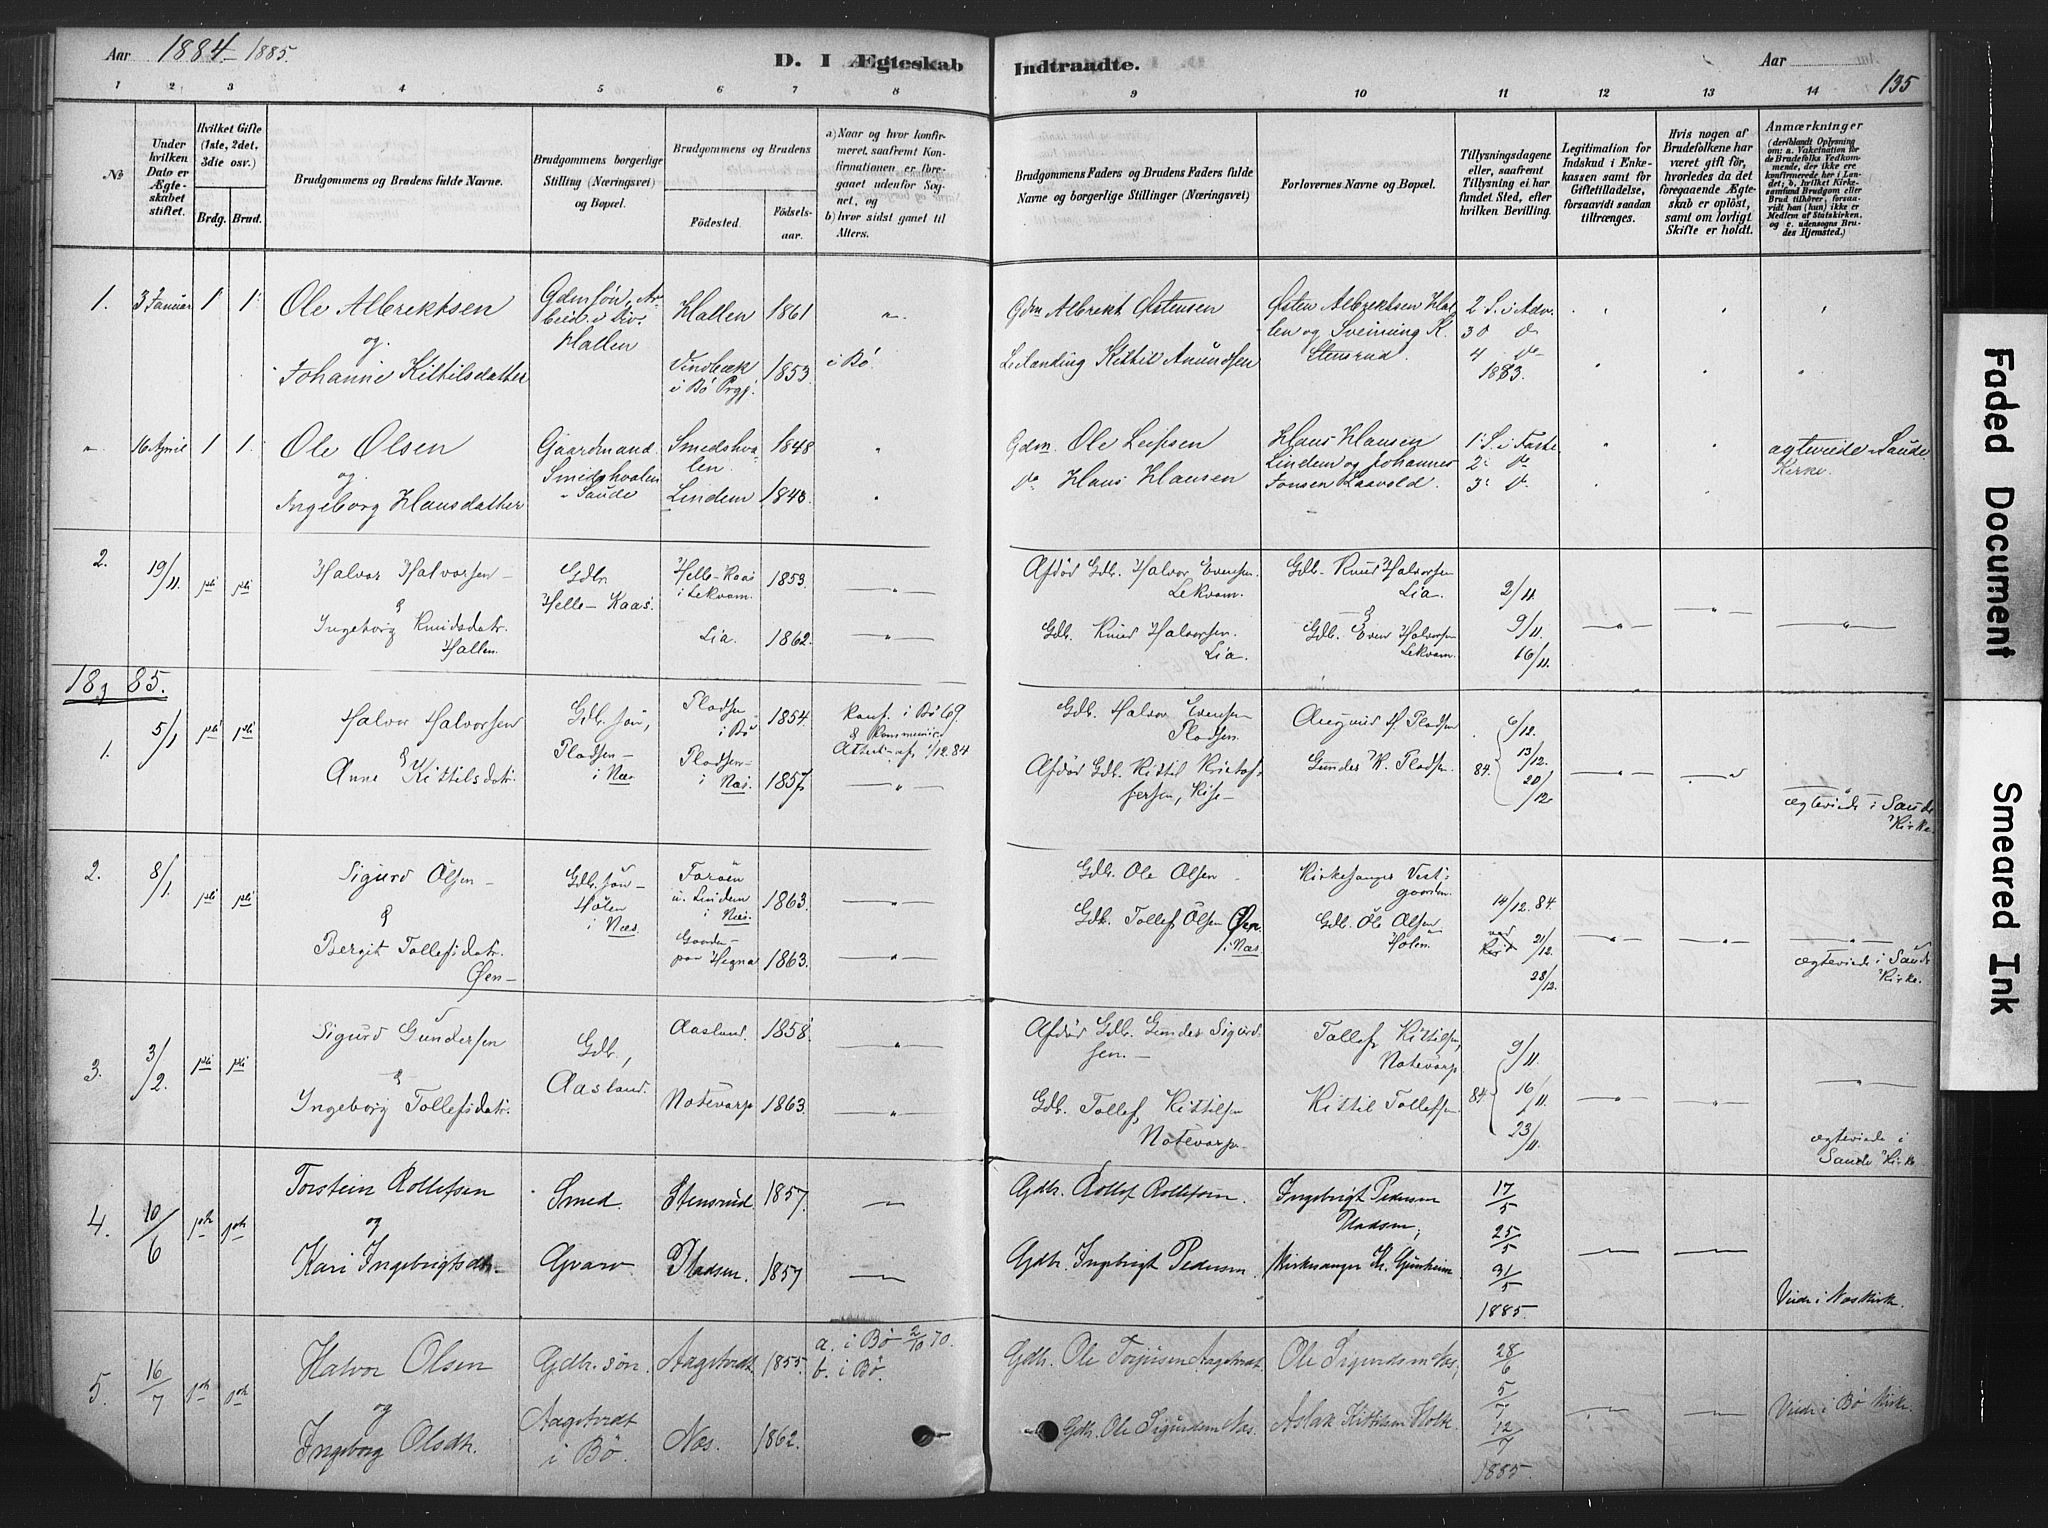 Aar 1884-1885.
D. I Ægteskab
Indtraadte.
Aar
135
1 2 3 4 5 6 7 8
9 10 11 12 13 14
No
Under hvilken Dato er Ægteskabet stiftet.
Hvilket Gifte (1ste, 2det, 3die osv.)
Brdg. Brud.
Brudgommens og Brudens fulde Navne.
Brudgommens borgerlige Stilling (Næringsvei) og Bopæl.
Brudgommens og Brudens
Födested.
Födsels-aar.
a) Naar og hvor konfirmeret, saafremt Konfirmationen er foregaaet udenför Sognet, og
b) hvor sidst ganet til Alters.
Brudgommens Faders og Brudens Faders fulde Navne og borgerlige Stillinger (Næringsvei)
Forlovernes Navne og Bopæl.
Tillysningsdagene eller, saafremt Tillysning ei har fundet Sted, efter hvilken Bevilling.
Legitimation for Indskud i Enkekassen samt for Giftetilladelse, forsaavidt saadan tiltrænges.
Hvis nogen af Brudefolkene har været gift för, hvorledes da det foregaaende Ægteskab er oplöst, samt om lovligt Skifte er holdt.
Anmærkninger
(deriblandt Oplysning om: a. Vakcination for de Brudefolks Vedkommende, der ikke ere konfirmerede her i Landet; b. hvilket Kirkesamfund Brudgom eller Brud tilhörer, forsaavidt han (hun) ikke er Medlem af Statskirken, og c. udensogns Brudes Hjemsted.)
1. 3 Januar 1 1
Ole Albrektsen
og
Johanne Kittilsdatter
Hallen
Hallen 1861
Vindbæk i Bö Prgj. 1853
i Bö.
Gdm Albrekt Østensen
Leilending Kittil Amundsen
Østen Albrektsen Hallen og Sveinung K. Stensrud.
2 S. i Adv.
3 d
4 do
1883.
16 April 1 1
Ole Olsen
og
Ingeborg Hansdatter
Gaardmand Smedshvalen Saude
Smedshvalen 1848
Lindem 1843
Gdm. Ole Leifsen
do Hans Hansen
Hans Hansen Lindem og Johannes Jonsen Laavold.
1: S. i Faste
2: do
3: do
ægteviede i Saude Kirke.
2. 19/11 1ste 1ste
Halvor Halvorsen
&
Ingeborg Knudsdatr. Hallen.
Gdbr. Helle-Kaas.
Helle-Kaas i Lekvam. 1853.
Lia. 1862.
Afdöd Gdb. Halvor Evensen. Lekvam.
Gdb. Knud Halvorsen. Lia.
Gdb. Knud Halvorsen Lia.
&
Gdb. Even Halvorsen Lekvam.
2/11
9/11.
16/11.
1885.
1. 5/1 1ste 1ste
Halvor Halvorsen
&
Anne Kittilsdatr.
Gdb. sön, Pladsen i Næs
Pladsen i Bö 1854.
Pladsen i Næs. 1857
Konf. i Bö 69. & kommunic. Attest af 1/12.84
Gdb. Halvor Evensen Pladsen.
Afdöd Gdb. Kittil Kristoffersen, Kise
H. Pladsen
Gunder K. Pladsen.
84. 6/12. 13/12. 20/12.
ægteviede i Saude Kirke.
2. 8/1. 1ste 1ste
Sigurd Olsen
&
Bergit Tollefsdatr. Øen
Gdb. sön Holen i Næs
u. Lindem i Næs. 1863.
Hegna 1863.
Gdb. Ole Olsen
Gdb. Tollef Olsen Øen. i Næs
Kirkesanger Vestgaarden.
Gdb. Ole Olsen Holen.
14/12. 84.
21/12.
28/12.
ægteviede i Saude Kirke.
3. 3/2. 1ste 1ste
Sigurd Gundersen
&
Ingeborg Tollefsdatr.
Gdb, Aasland.
Aasland. 1858
Notevarp 1863.
Afdöd Gdb. Gunder Sigurdsen.
Gdb. Tollef Kittilsen Notevarp.
Tollef Kittilsen, Notevarp
Kittil Tollefsen
84 9/11 16/11. 23/11.
ægteviede i Saude Kirke
4. 10/6 1ste 1ste
Torstein Rollefsen
og
Kari Ingebrigtsdtr.
Smed.
Gvarv
Stensrud 1857.
Pladsen. 1857
Gdbr. Rollef Rollefsen.
Gdbr. Ingebrigt Pedersen
Ingebrigt Pedersen Pladsen,
Kirkesanger H. Gunheim
17/5
25/5
31/5
1885.
Viede i Næs Kirke.
5. 16/7 1ste 1ste
Halvor Olsen
og
Ingeborg Olsdtr.
Gdbr. sön. Aagetvedt i Bö.
Aagetvedt 1855
Næs. 1862.
a. i Bö 2/10 70.
b. i Bö.
Gdbr. Ole Torjusen Aagetvedt.
Gdbr. Ole Sigurdsen Næs.
Ole Sigurdsen Næs,
Aslak Kittilsen Holte.
28/6
5/7
12/7
1885.
Viede i Bö Kirke.
Faded Document
Smeared Ink